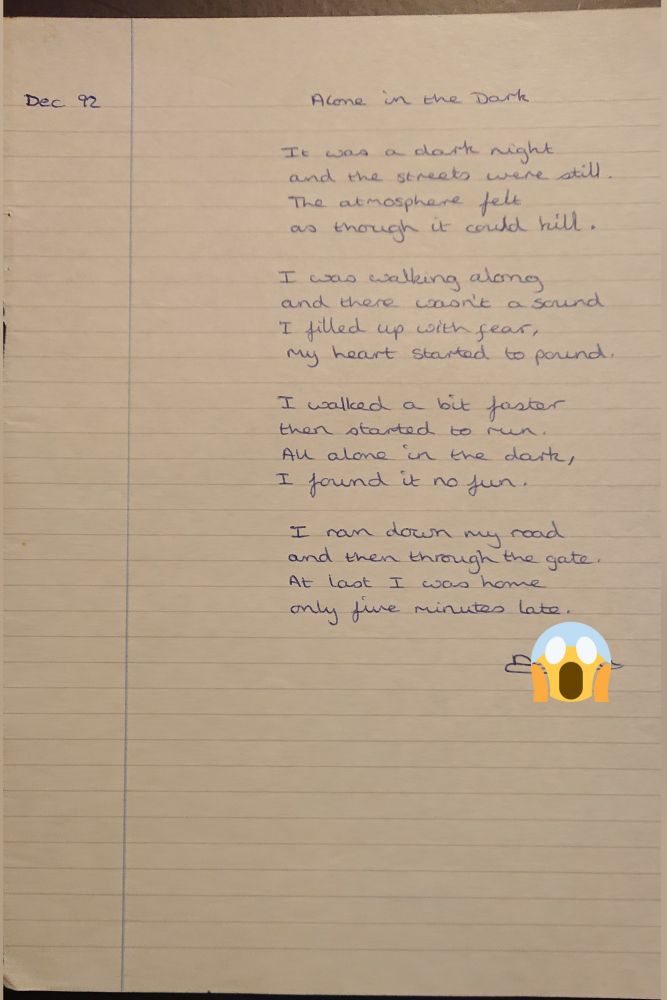 Dec 92
Alone in the Dark
It was a dark night
and the streets were still.
The atmosphere felt
as though it could kill.
I was walking along
and there wasn't a sound
I filled up with fear,
my heart started to pound.
I walked a bit faster
then started to run.
All alone in the dark,
I found it no fun.
I ran down my road
and then through the gate.
At last I was home
only five minutes late.